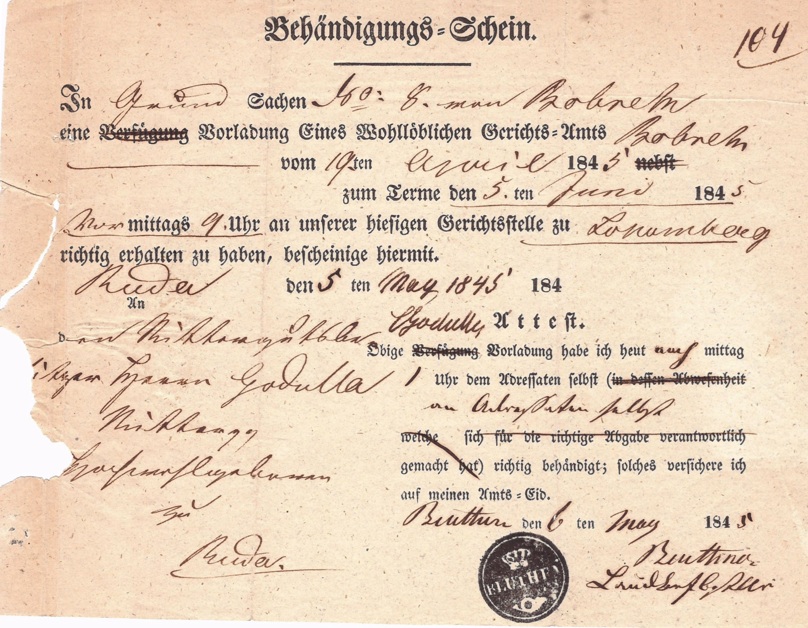 Behändigungs-Schein.
104
In Grund Sachen No: 8. von Bobrek
eine Verfügung Vorladung Eines Wohllöblichen Gerichts-Amts Bobrek
vom 19ten April 1845 nebst
zum Terme den 5. ten Juni 1845
Vormittags 9. Uhr an unserer hiesigen Gerichtsstelle zu
richtig erhalten zu haben, bescheinige hiermit.
Ruda den 5 ten May 1845 184
An
Godulla
Attest.
den Rittergutsbe
sitzer Herrn Godulla
zu
Ruda.
Obige Verfügung Vorladung habe ich heut mittag
1 Uhr dem Adressaten selbst (in dessen Abwesenheit
an Adressaten selbst
welche sich für die richtige Abgabe verantwortlich
gemacht hat) richtig behändigt; solches versichere ich
auf meinen Amts-Eid.
Beuthen den 6 ten May 1845